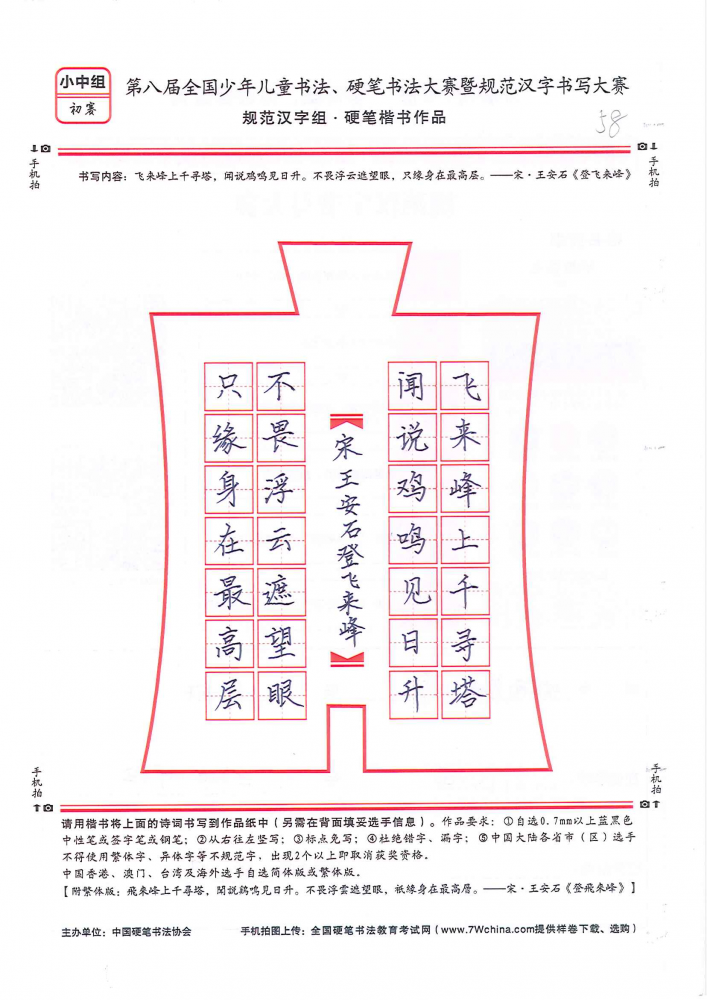 小中组
初赛
第八届全国少年儿童书法、硬笔书法大赛暨规范汉字书写大赛
规范汉字组·硬笔楷书作品
58
手机拍
手机拍
书写内容：飞来峰上千寻塔，闻说鸡鸣见日升。不畏浮云遮望眼，只缘身在最高层。——宋·王安石《登飞来峰》
飞来峰上千寻塔
闻说鸡鸣见日升
宋王安石登飞来峰
不畏浮云遮望眼
只缘身在最高层
手机拍
手机拍
请用楷书将上面的诗词书写到作品纸中（另需在背面填妥选手信息）。作品要求：①自选0.7mm以上蓝黑色
中性笔或签字笔或钢笔；②从右往左竖写；③标点免写；④杜绝错字、漏字；⑤中国大陆各省市（区）选手
不得使用繁体字、异体字等不规范字，出现2个以上即取消获奖资格。
中国香港、澳门、台湾及海外选手自选简体版或繁体版。
【附繁体版：飛來峰上千尋塔，聞説鷄鳴見日升。不畏浮雲遮望眼，祇緣身在最高層。——宋·王安石《登飛來峰》】
主办单位：中国硬笔书法协会
手机拍图上传：全国硬笔书法教育考试网（www.7Wchina.com提供样卷下载、选购）